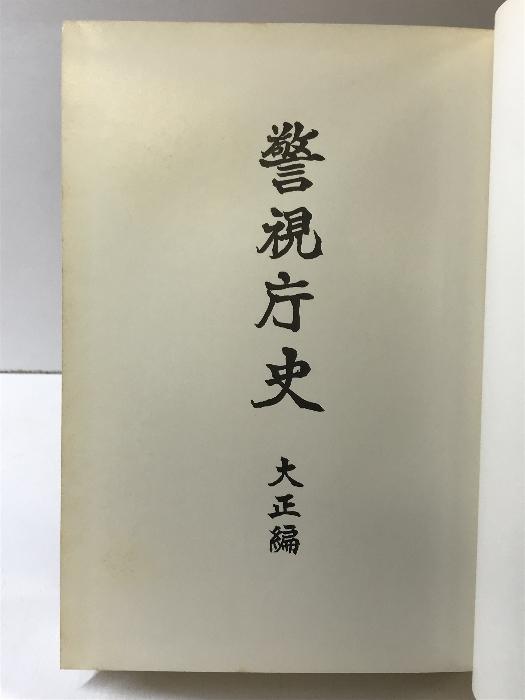 警視庁史
大正編